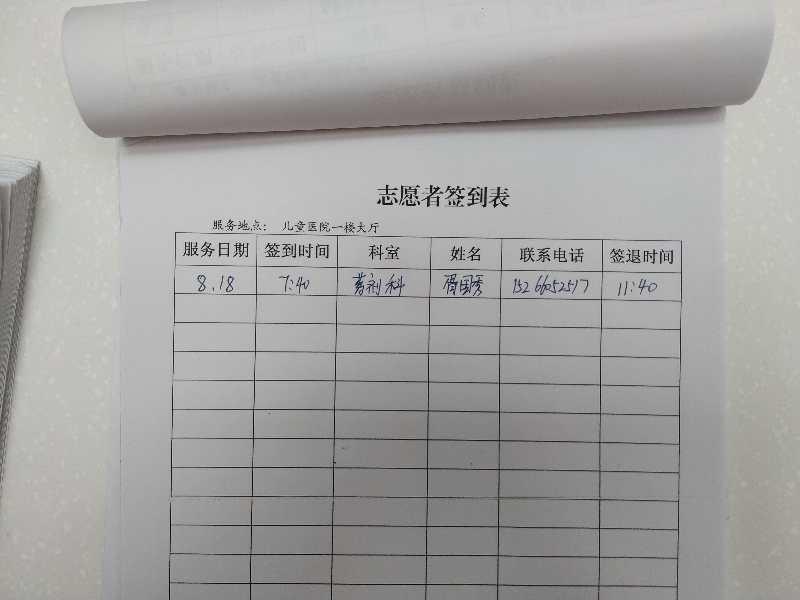 志愿者签到表
服务地点： 儿童医院一楼大厅
服务日期 签到时间 科室 姓名 联系电话 签退时间
8.18 7:40 药剂科 国秀 15266052517 11:40